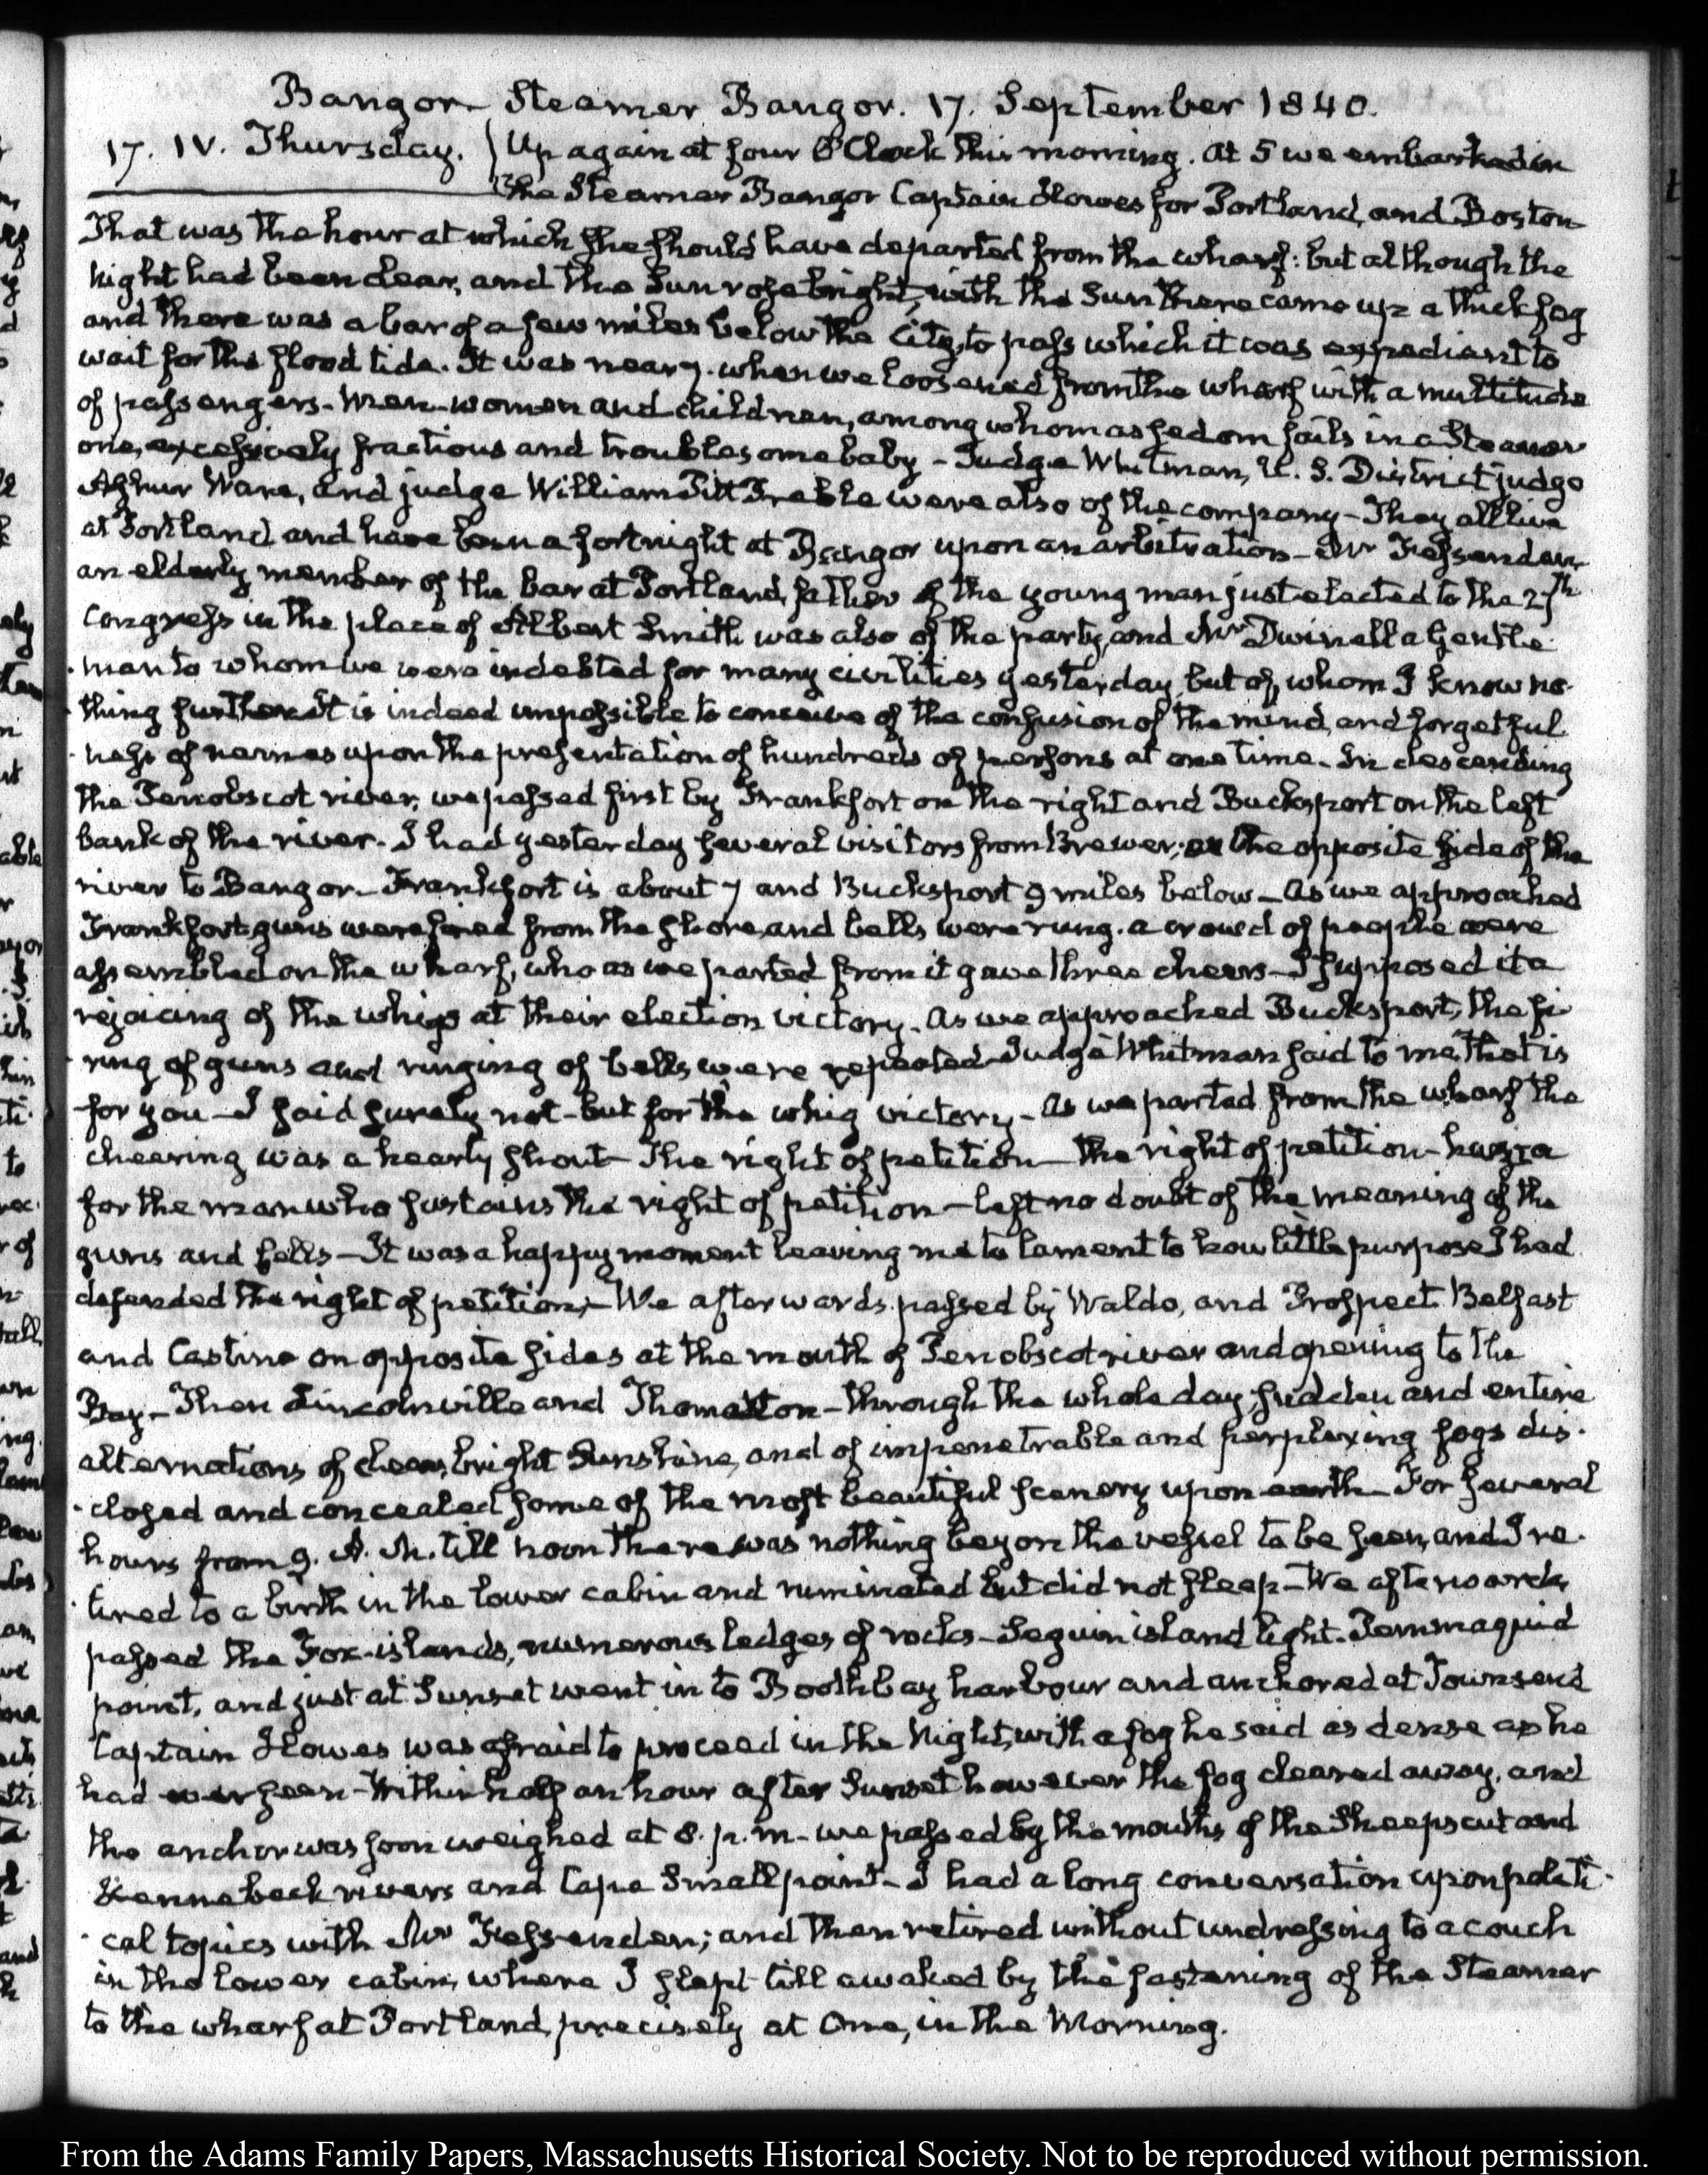 Bangor - Steamer Bangor. 17. September 1840.
17. IV. Thursday. Up again at four O'Clock this morning. At 5 we embarked in
the Steamer Bangor Captain Howes for Portland, and Boston
That was the hour at which she should have departed from the wharf: but although the
night had been clear, and the Sun rose bright, with the Sun there came up a thick fog
and there was a bar of a few miles below the City, to pass which it was expedient to
wait for the flood tide. It was near 7. when we loosened from the wharf with a multitude
of passengers - men - women and children, among whom as seldom fails in a Steamer
one, excessively fractious and troublesome baby - Judge Whitman, U. S. District judge
Ashur Ware, and judge William Pitt Preble were also of the company - They all live
at Portland and have been a fortnight at Bangor upon an arbitration - Mr Fessenden,
an elderly member of the bar at Portland, father of the young man just elected to the 27th
Congress in the place of Albert Smith was also of the party, and Mr Dwinell a Gentle-
man to whom we were indebted for many civilities yesterday, but of whom I know no-
thing further It is indeed impossible to conceive of the confusion of the mind, and forgetful-
ness of names upon the presentation of hundreds of persons at one time. In descending
the Penobscot river, we passed first by Frankfort on the right and Bucksport on the left
bank of the river. I had yesterday several visitors from Brewer; on the opposite side of the
river to Bangor - Frankfort is about 7 and Bucksport 9 miles below - As we approached
Frankfort, guns were fired from the shore, and bells were rung. a crowd of people were
assembled on the wharf, who as we parted from it gave three cheers - I supposed it a
rejoicing of the whigs at their election victory. As we approached Bucksport, the fi-
ring of guns and ringing of bells were repeated - Judge Whitman said to me, That is
for you - I said surely not - but for the whig victory - As we parted from the wharf the
cheering was a hearty shout - The right of petition - the right of petition - huzza
for the man who sustains the right of petition - left no doubt of the meaning of the
guns and bells - It was a happy moment leaving me to lament to how little purpose I had
defended the right of petition, - We afterwards passed by Waldo, and Prospect. Belfast
and Castine on opposite sides at the mouth of Penobscot river and opening to the
Bay - Then Lincolnville and Thomaston - through the whole day, sudden and entire
alternations of clear, bright Sunshine, and of impenetrable and perplexing fogs dis-
closed and concealed some of the most beautiful scenery upon earth - For several
hours from 9. A. M. till noon there was nothing beyon the vessel to be seen, and I re-
tired to a birth in the lower cabin and ruminated but did not sleep - We afterwards
passed the Fox-islands, numerous ledges of rocks - Seguin island light. Pemmaquid
point, and just at Sunset went in to Boothbay harbour and anchored at Townsend
Captain Howes was afraid to proceed in the Night, with a fog he said as dense as he
had ever seen - Within half an hour after Sunset however the fog cleared away, and
the anchor was soon weighed at 8. p. m. - we passed by the mouths of the Sheepscut and
Kennebeck rivers and Cape Small point - I had a long conversation upon politi-
cal topics with Mr Fessenden; and then retired without undressing to a couch
in the lower cabin, where I slept till awaked by the fastening of the Steamer
to the wharf at Portland, precisely at One, in the Morning.
From the Adams Family Papers, Massachusetts Historical Society. Not to be reproduced without permission.